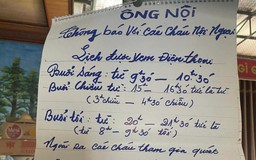 ÔNG NỘI
Thông báo Với Các Cháu Nội Ngoại
Lịch được Xem Điện thoại
Buổi Sáng: từ 9h30 – 10h30
Buổi Chiều từ 15h – 16h30
(3h chiều – 4h30 chiều)
Buổi tối: từ 20h – 21h30
(từ 8h – 9h30 tối)
Ngoài ra các cháu tham gia